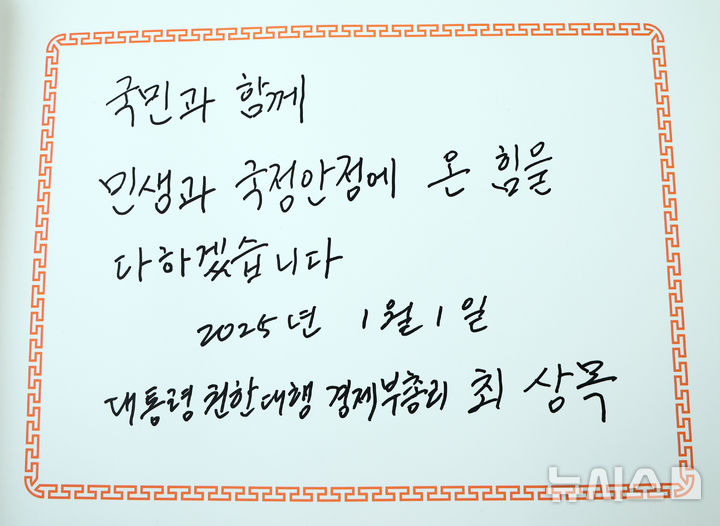 국민과 함께
민생과 국정안정에 온 힘을
다하겠습니다
2025년 1월 1일
대통령 권한대행 경제부총리 최상목
뉴시스